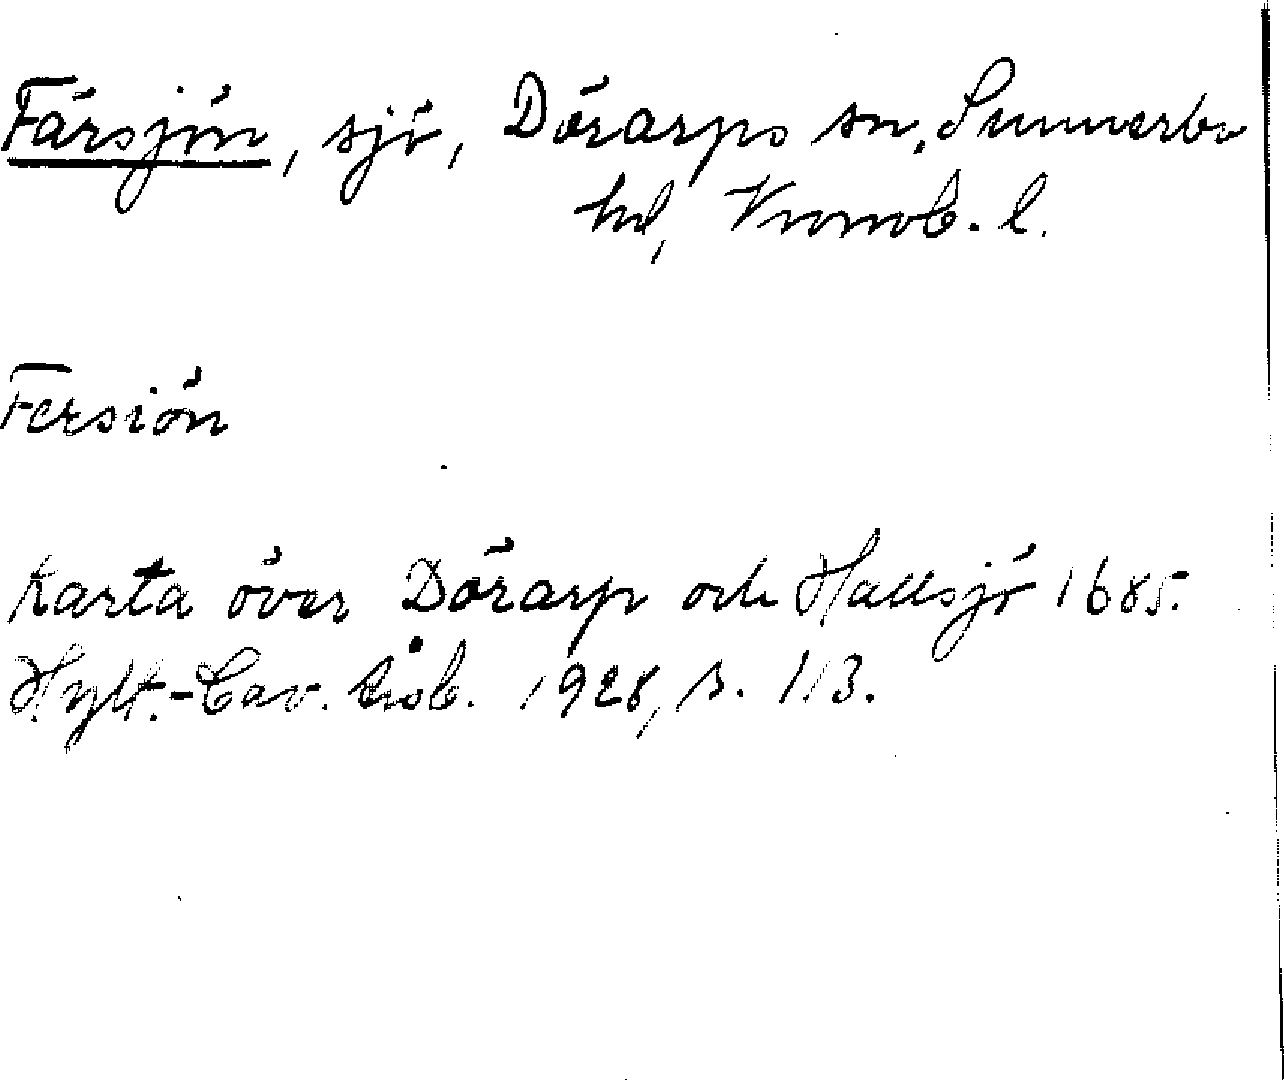 Färsjön, sjö, Dörarps sn, Sunnerbo
hd, Kronob. l.
Fersiön
Karta över Dörarp och Hallsjö 1685.
Hylt.-Cav. årsb. 1928, s. 113.